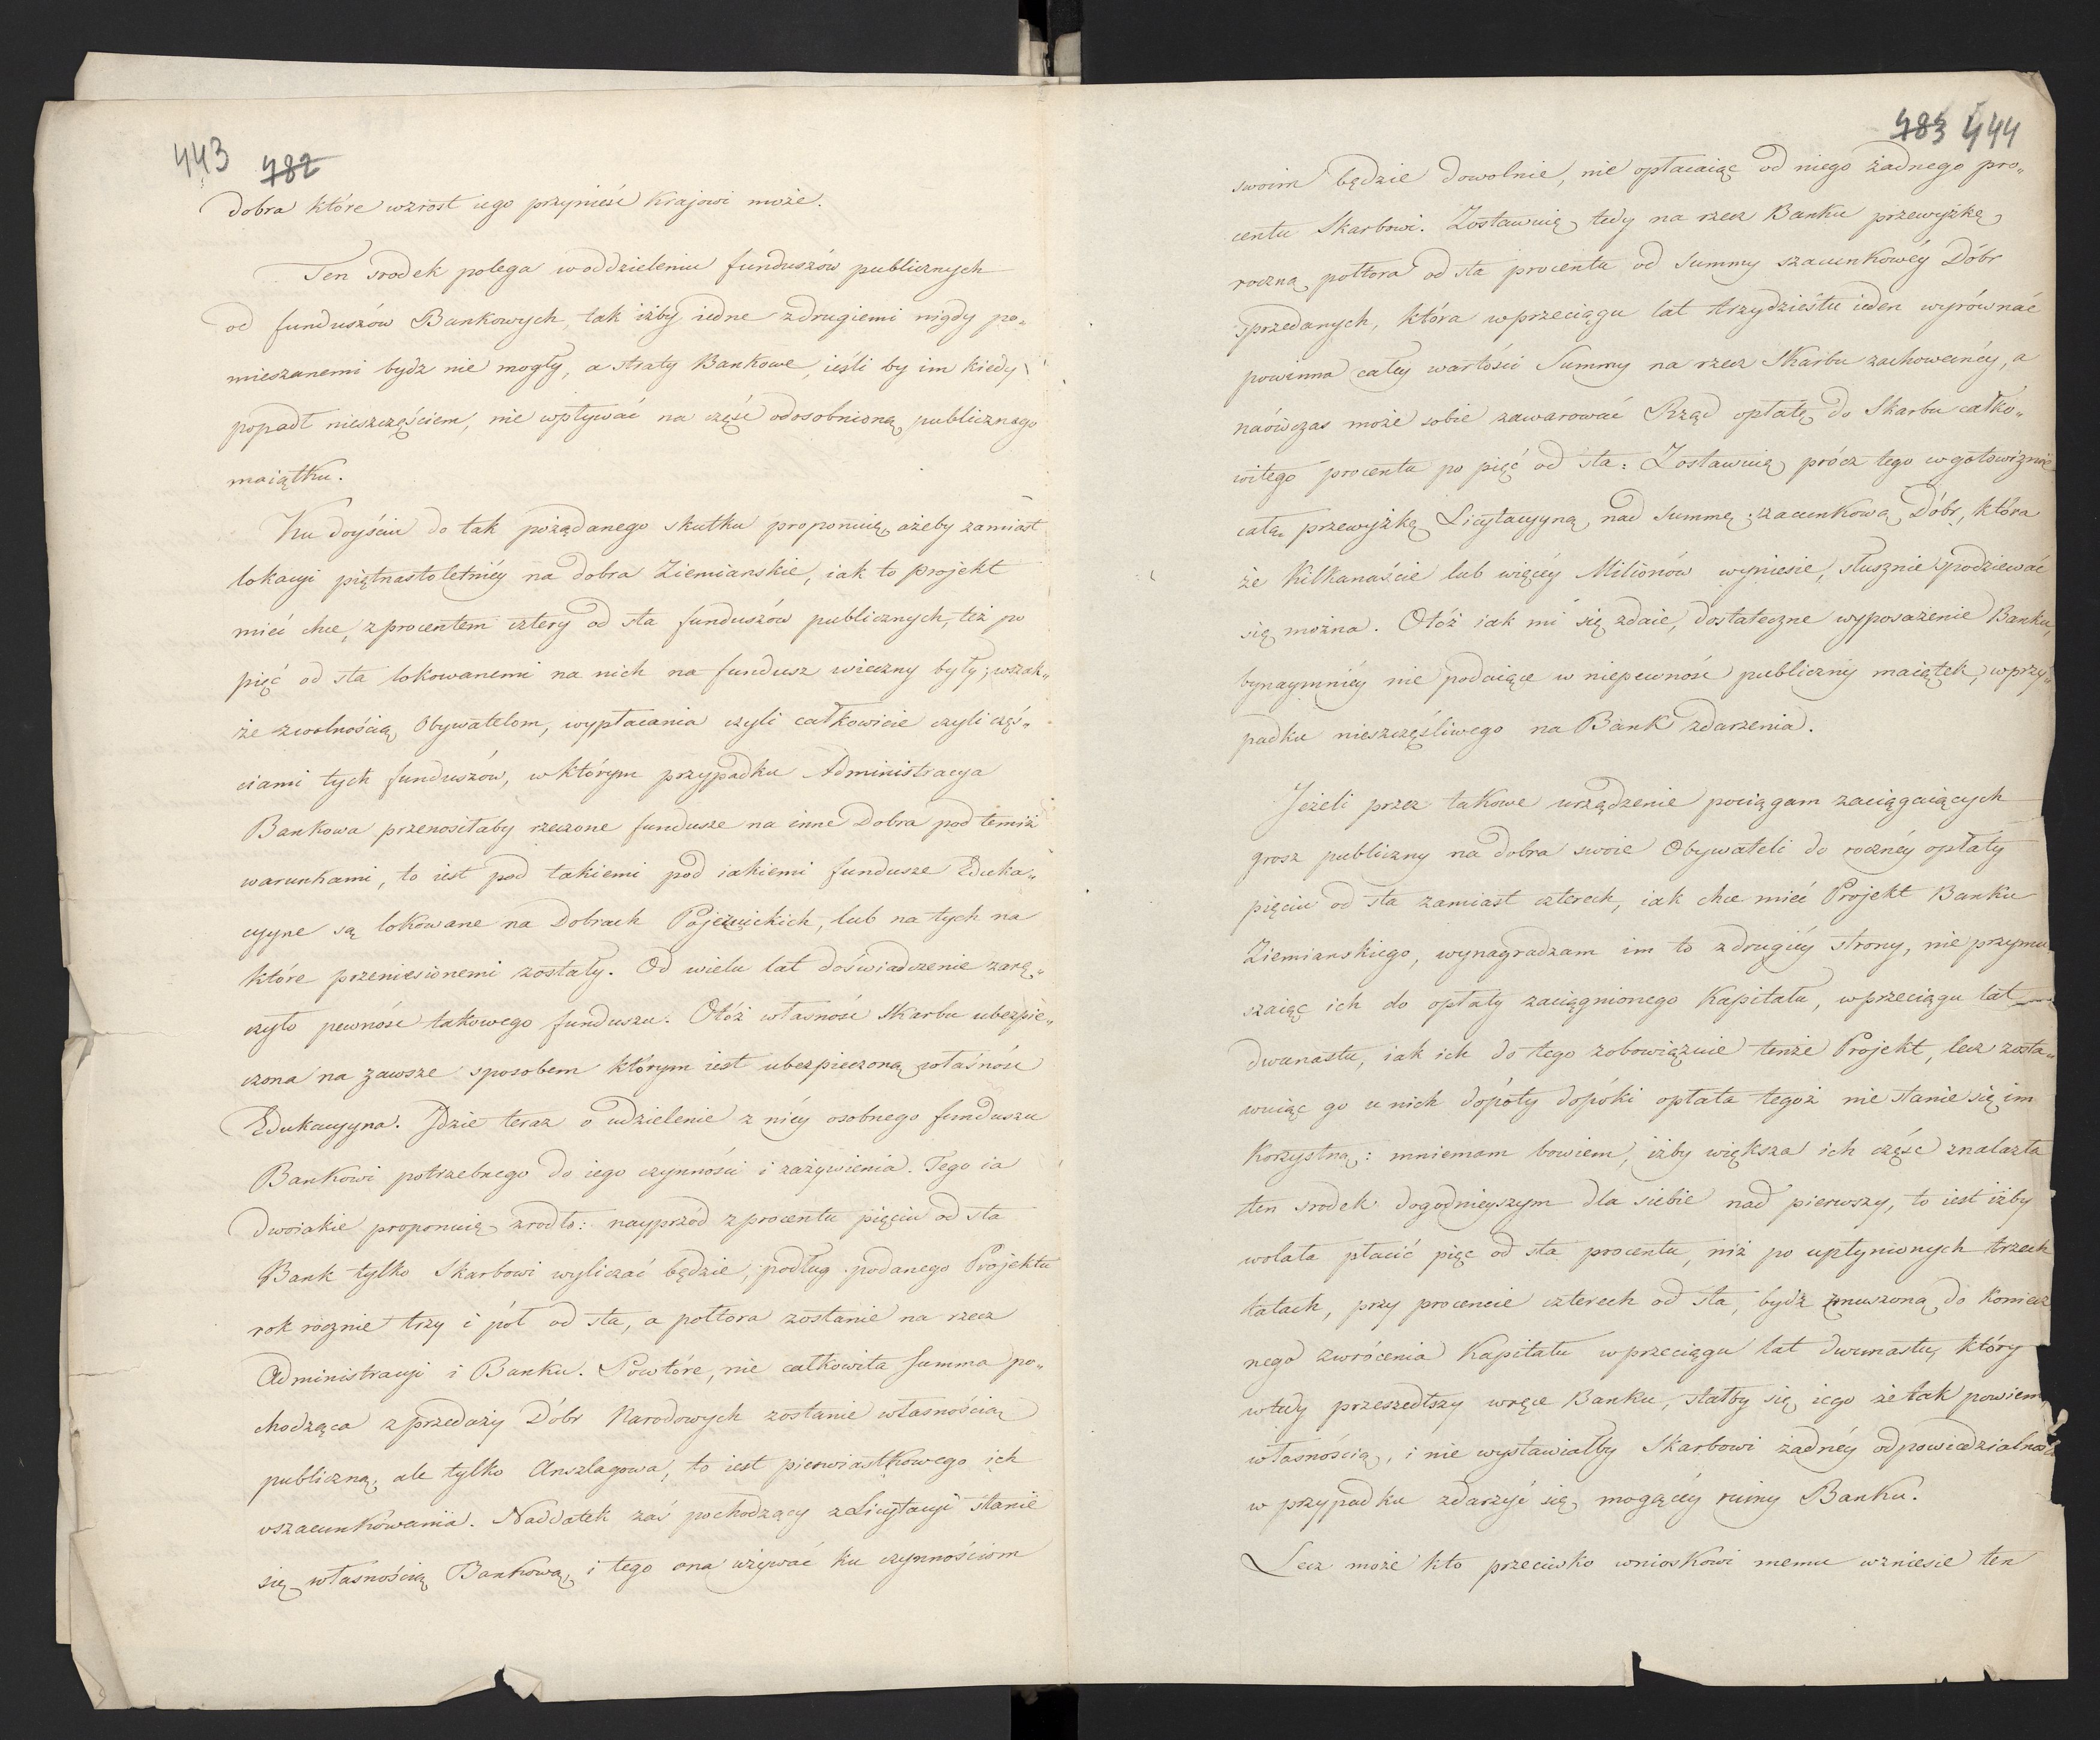 443 782
dobra które wzrost iego przynieść Krajowi może.
Ten srodek polega w oddzieleniu funduszów publicznych
od funduszów Bankowych, tak iżby iedne z drugiemi nigdy po„
mieszanemi bydz nie mogły, a straty Bankowe, ieśli by im kiedy
popadł nieszczęściem, nie wpływać na część odosobnioną publicznego
maiątku.
Ku doyściu do tak pożądanego skutku proponuię, ażeby zamiast
lokacyi piętnastoletniéy na dobra Ziemianskie, iak to projekt
mieć chce, z procentem cztery od sta funduszów publicznych, też po
pięć od sta lokowanemi na nich na fundusz wieczny były; wszak„
że z wolnością Obywatelom, wypłacania czyli całkowicie czyli częś„
ciami tych funduszów, w którym przypadku Administracya
Bankowa przenosiłaby rzeczone fundusze na inne Dobra pod temiż
warunkami, to iest pod takiemi pod iakiemi fundusze Eduka„
cyyne są lokowane na Dobrach Pojezuickich, lub na tych na
które przeniesionemi zostały. Od wielu lat doświadczenie zarę„
czyło pewność takowego funduszu. Otóż własność Skarbu ubezpie„
czona na zawsze sposobem którym iest ubezpieczoną własność
Edukacyyna. Jdzie teraz o udzielenie z niéy osobnego funduszu
Bankowi potrzebnego do iego czynności i zażywienia. Tego ia
dwoiakie proponuię zrodło: nayprzód z procentu pięciu od sta
Bank tylko Skarbowi wyliczać będzie, podług podanego Projektu
rok rocznie trzy i pół od sta, a półtora zostanie na rzecz
Administracyi i Banku. Powtóre, nie całkowita Summa po„
chodząca z przedaży Dóbr Narodowych zostanie własnością
publiczną, ale tylko Anszlagowa, to iest pierwiastkowego ich
oszacunkowania. Naddatek zaś pochodzący z Licytacyi stanie
się własnością Bankową, i tego ona używać ku czynnościom
783 444
swoim będzie dowolnie, nie opłacaiąc od niego żadnego pro„
centu Skarbowi. Zostawuię tedy na rzecz Banku przewyżkę
roczną półtora od sta procentu od Summy szacunkowéy Dóbr
sprzedanych, która w przeciągu lat trzydziestu ieden wyrównać
powinna całéy wartości Summy na rzecz Skarbu zachowanéy, a
naówczas może sobie zawarować Rząd opłatę do Skarbu całko„
witego procentu po pięć od sta: Zostawuię prócz tego w gotowiznie
całą przewyżkę Licytacyyną nad Summę szacunkową Dóbr, która
że kilkanaście lub więcéy Milionów wyniesie, słusznie spodziewać
się można. Otóż iak mi się zdaie, dostateczne wyposażenie Banku,
bynaymniéy nie podaiące w niepewność publiczny maiątek, w przy„
padku nieszczęśliwego na Bank zdarzenia.
Jeżeli przez takowe urządzenie pociągam zaciągaiących
grosz publiczny na dobra swoie Obywateli do rocznéy opłaty
pięciu od sta zamiast czterech, iak chce mieć Projekt Banku
Ziemianskiego, wynagradzam im to z drugiéy strony, nie przymu„
szaiąc ich do opłaty zaciągnionego Kapitału, w przeciągu lat
dwunastu, iak ich do tego zobowiązuie tenże Projekt, lecz zosta„
wuiąc go u nich dopóty dopóki opłata tegoż nie stanie się im
korzystną: mniemam bowiem, iżby większa ich część znalazła
ten srodek dogodnieyszym dla siebie nad pierwszy, to iest iżby
wolała płacić pięc od sta procentu, niż po upłynionych trzech
latach, przy procencie czterech od sta, bydź zmuszoną do koniecz
nego zwrócenia Kapitału w przeciągu lat dwunastu, który
wtedy przeszedłszy w ręce Banku, stałby się iego że tak powiem
własnością, i nie wystawiałby Skarbowi żadnéy odpowiedzialności
w przypadku zdarzyć się mogącéy ruiny Banku.
Lecz może kto przeciwko wnioskowi memu wzniesie ten